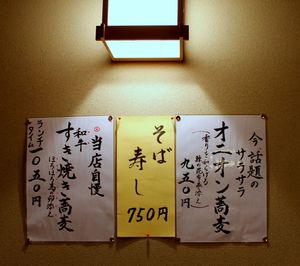 今話題の
サラサラ
オニオン蕎麦
九五〇円
そば
寿し
750円
当店自慢
和牛
すき焼き蕎麦
ランチタイム
一〇五〇円